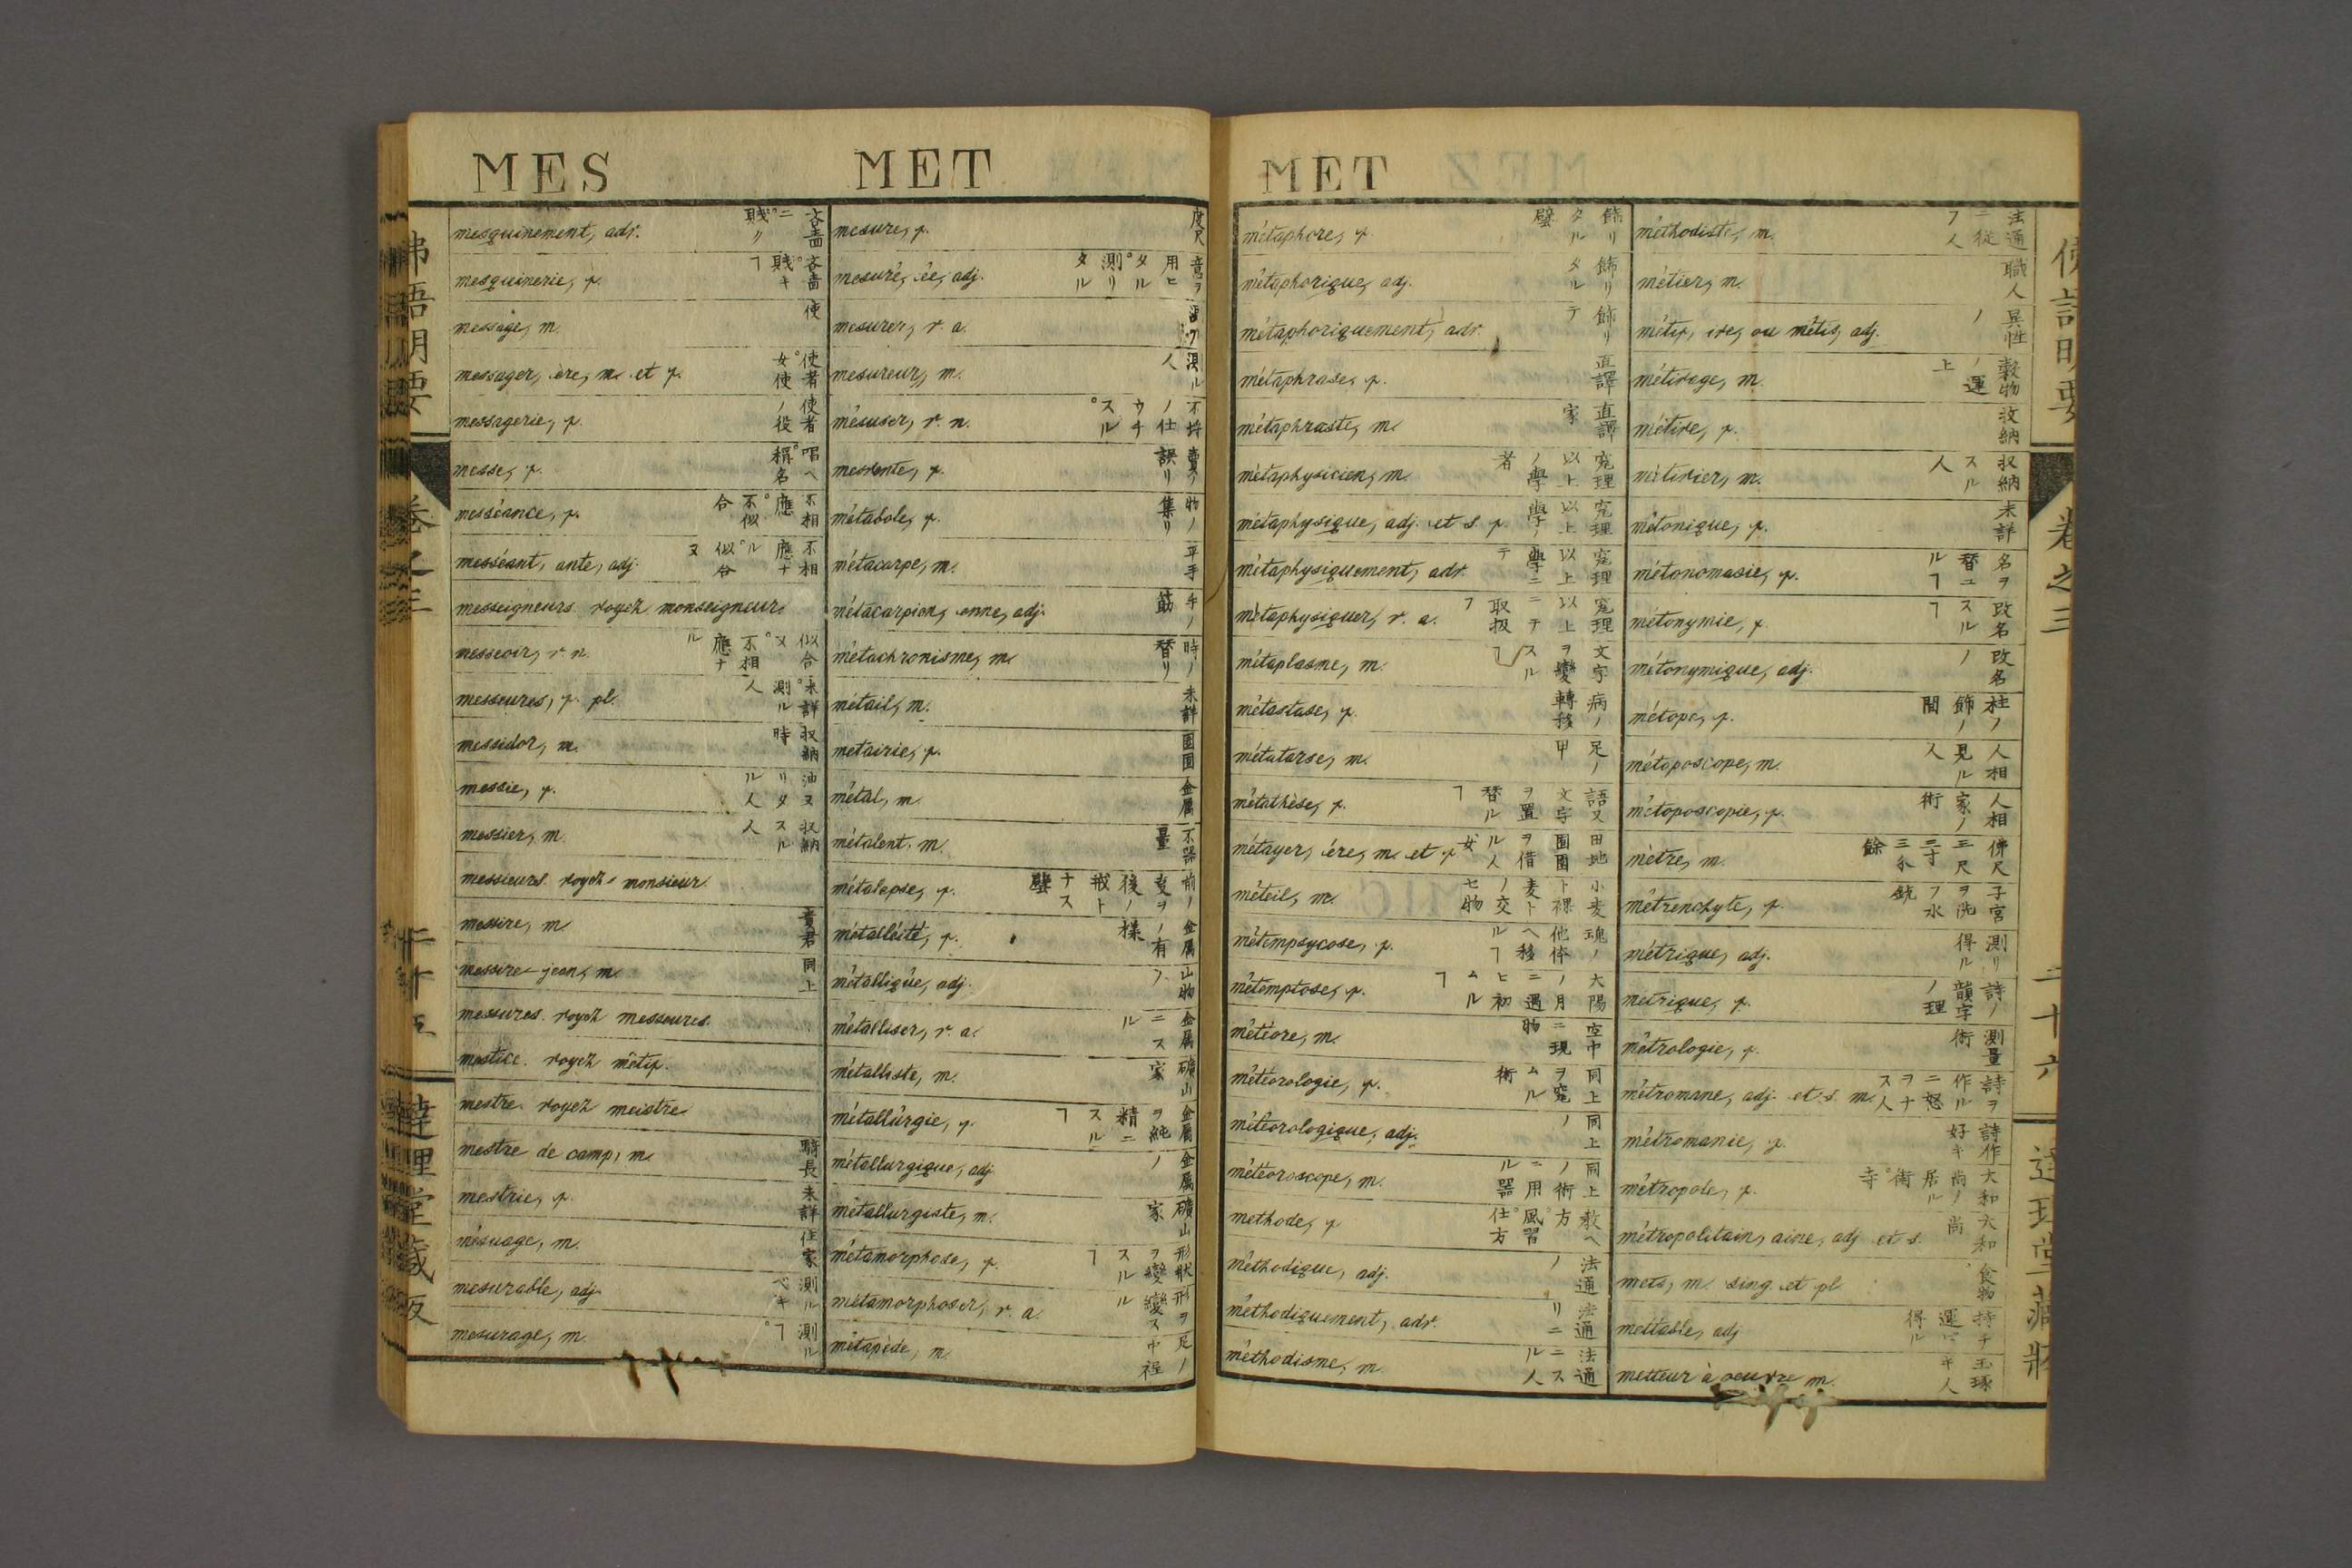 MES
MET
mesquinement, adv. 吝嗇ニ°賎リ
mesquinerie, f. 吝嗇°賎キヿ
message, m. 使
messager, ère, m. et f. 使者°女使
messagerie, f. 使者ノ役
messe, f. 唱ヘ°稱名
messéance, f. 不相應°不似合
messéant, ante, adj. 不相應ナル°似合ヌ
messeigneurs. voyez monseigneur.
messeoir, v. n. 似合ヌ°不相應ナル
messeures, f. pl. 未詳°測ル人
messidor, m. 収納時
messie, f. 油ヌリタル人
messier, m. 収納スル人
messieurs. voyez monsieur.
messire, m. 貴君
messire-jean, m. 同上
messures. voyez messeures.
mestice. voyez métif.
mestre. voyez meistre
mestre de camp, m. 騎長
mestrie, f. 未詳
mésuage, m. 住家
mesurable, adj. 測ルベキ
mesurage, m. 測ルヿ°
mesure, f. 度尺
mesuré, ée, adj. 意ヲ用ヒタル°測リタル
mesurer, v. a.
mesureur, m. 測ル人
mésuser, v. n.
mesvente, f. 賣ノ誤リ
métabole, f. 物ノ集リ
métacarpe, m. 平手
métacarpien, enne, adj. 手ノ筋
métachronisme, m. 時ノ替リ
métail, m. 未詳
metairie, f.
métal, m. 金属
métalent. m. 不器量
métalepse, f. 前ノ變ヲ後ノ戒トナス譬
métalléité, f. 金属ノ有様
métallique, adj. 山物ノ
métalliser, v. a. 金属ニスル
métalliste, m. 礦山家
métallurgie, f. 金属ヲ純精ニスルヿ
métallurgique, adj. 金属ノ
métallurgiste, m. 礦山家
métamorphose, f. 形状ヲ變スルヿ
métamorphoser, v. a. 形ヲ變スル
métapède, m. 足ノ中程
佛語明要
卷之三
二十五
達理堂藏版
MET
métaphore, f. 飾リタル譬
métaphorique, adj. 飾リタル
métaphoriquement, adv. 飾リテ
métaphrase, f. 直譯
métaphraste, m. 直譯家
métaphysicien, m. 究理以上ノ學者
métaphysique, adj. et s. f. 究理以上ノ學
métaphysiquement, adv. 究理以上學ニテ
métaphysiquer, v. a. 究理以上ニテ取扱フ
métaplasme, m. 文字ヲ變スルヿ
métastase, f. 病ノ轉移
métatarse, m. 足ノ甲
métathèse, f. 語又文字ヲ置替ルヿ
métayer, ère, m. et f. 田地園圃ヲ借ル人°女
méteil, m. 小麦ト裸麦トノ交セ物
métempsycose, f. 魂ノ他体ヘ移ルヿ
métemptose, f. 大陽ノ月ニ遇ヒ初ムルヿ
météore, m. 空中ニ現物
météorologie, f. 同上ヲ究ムル術
météorologique, adj. 同上ノ
météoroscope, m. 同上ノ術ニ用ル器
methode, f. 教ヘ方°風習°仕方
méthodique, adj. 法通ノ
méthodiquement, adv. 法通リニ
méthodisme, m. 法通ニスル人
méthodiste, m. 法通ニ從フ人
métier, m. 職人
métif, ive, ou métis, adj. 異性ノ
métivage, m. 穀物ノ運上
métive, f. 收納
métivier, m. 収納スル人
métonique, f. 未詳
métonomasie, f. 名ヲ替ユルヿ
métonymie, f. 改名スルヿ
métonymique, adj. 改名ノ
métope, f. 柱ノ飾ノ間
métoposcope, m. 人相見ル人
métoposcopie, f. 人相家ノ術
mètre, m. 佛尺三尺三寸三分餘
métrenchyte, f. 子宮ヲ洗フ水銃
métrique, adj. 測リ得ル
metrique, f. 詩ノ韻字ノ理
métrologie, f. 測量術
métromane, adj. et s. m. 詩ヲ作ルニ怒ヲナス人
métromanie, f. 詩作好キ
métropole, f. 大和尚ノ居ル街°寺
métropolitain, aine, adj. et s. 大和尚
mets, m. sing. et pl. 食物
mettable, adj. 持チ運ビ得ル
metteur à oeuvre m.
卷之三
二十六